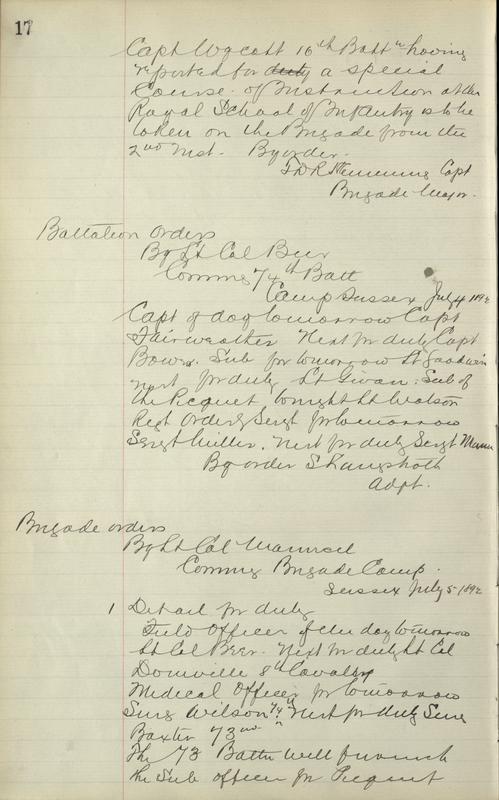 17
Capt Wycott 16th Battn having
reported for duty a special
Course of Instruction at the
Royal School of Infantry is to be
taken on the Brigade from the
2nd inst. By order.
Capt
Brigade Major.
Battalion orders
By Lt Col Beer
Commg 74th Batt
Camp Sussex July 4 1892
Capt of day tomorrow Capt
Fairweather Next for duty Capt
Bowes. Sub for tomorrow Lt Goodwin
next for duty Lt Givan. Sub of
the Picquet tonight Lt Watson
Regt Orderly Sergt for tomorrow
Sergt Miller. Next for duty Sergt
By order S Langstroth
Adpt.
Brigade orders
By Lt Col Maunsell
Commg Brigade Camp.
Sussex July 5 1892
1 Detail for duty
Field Officer of the day tomorrow
Lt Col Beer. Next for duty Lt Col
Domville 8th Cavalry
Medical Officer for tomorrow
Surg Wilson 74th Next for duty Surg
Baxter 73rd
The 73 Battn will furnish
the Sub officer for Picquet